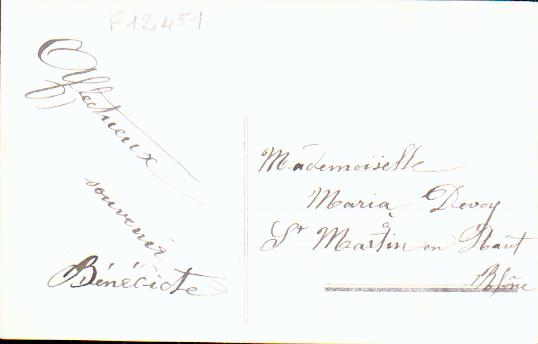 F12451
Affectueux
souvenir
Bénédicte
Mademoiselle
Maria Devoy
à
St Martin en Haut
Rhône